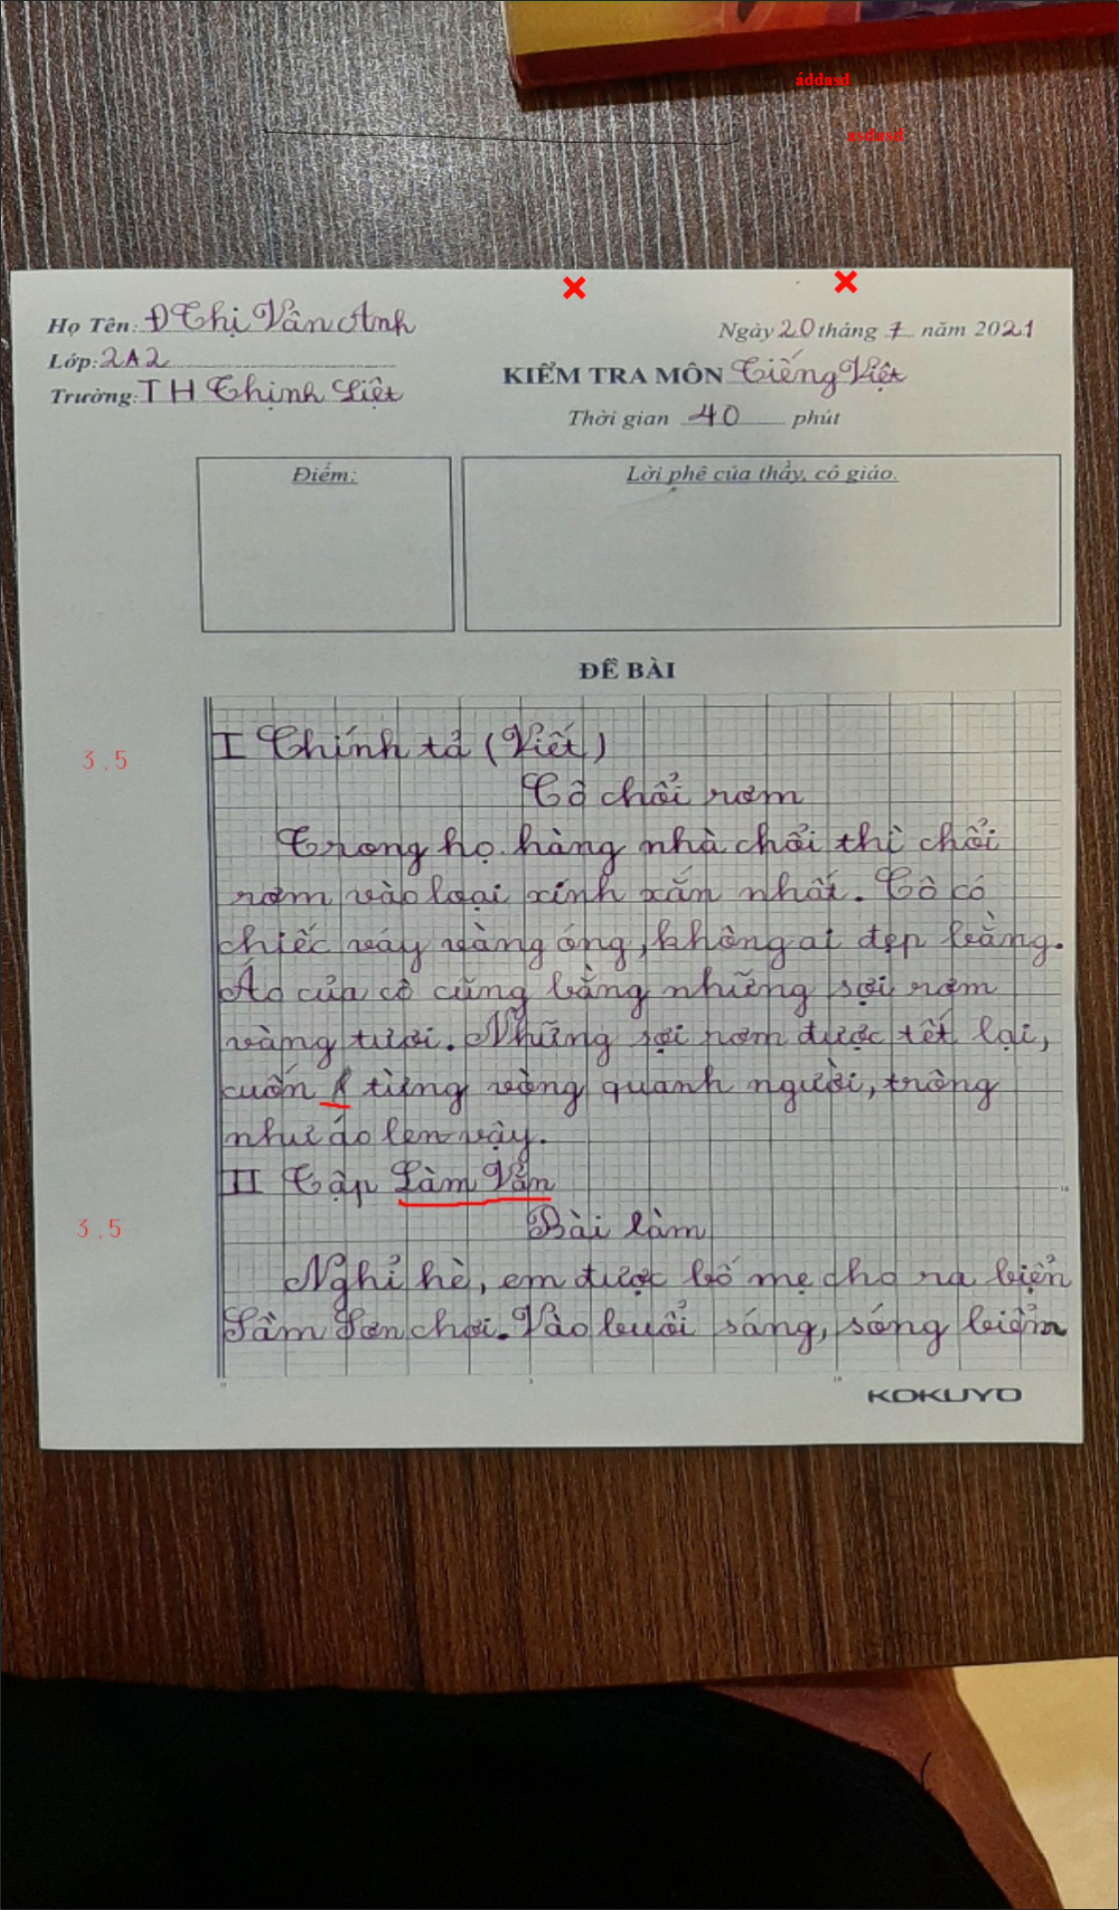 áddasd
asdasd
Họ Tên: Đ Thị Vân Anh
Ngày 20 tháng 7 năm 2021
Lớp: 2A2
KIỂM TRA MÔN Tiếng Việt
Trường: TH Thịnh Liệt
Thời gian 40 phút
Điểm:
Lời phê của thầy, cô giáo.
ĐỀ BÀI
3.5
I Chính tả (Viết)
Cô chổi rơm
Trong họ hàng nhà chổi thì chổi
rơm vào loại xinh xắn nhất. Cô có
chiếc váy vàng óng, không ai đẹp bằng.
Áo của cô cũng bằng những sợi rơm
vàng tươi. Những sợi rơm được tết lại,
cuốn từng vòng quanh người, trông
như áo len vậy.
II Tập Làm Văn
3.5
Bài làm
Nghỉ hè, em được bố mẹ cho ra biển
Sầm Sơn chơi. Vào buổi sáng, sóng biển
KOKUYO